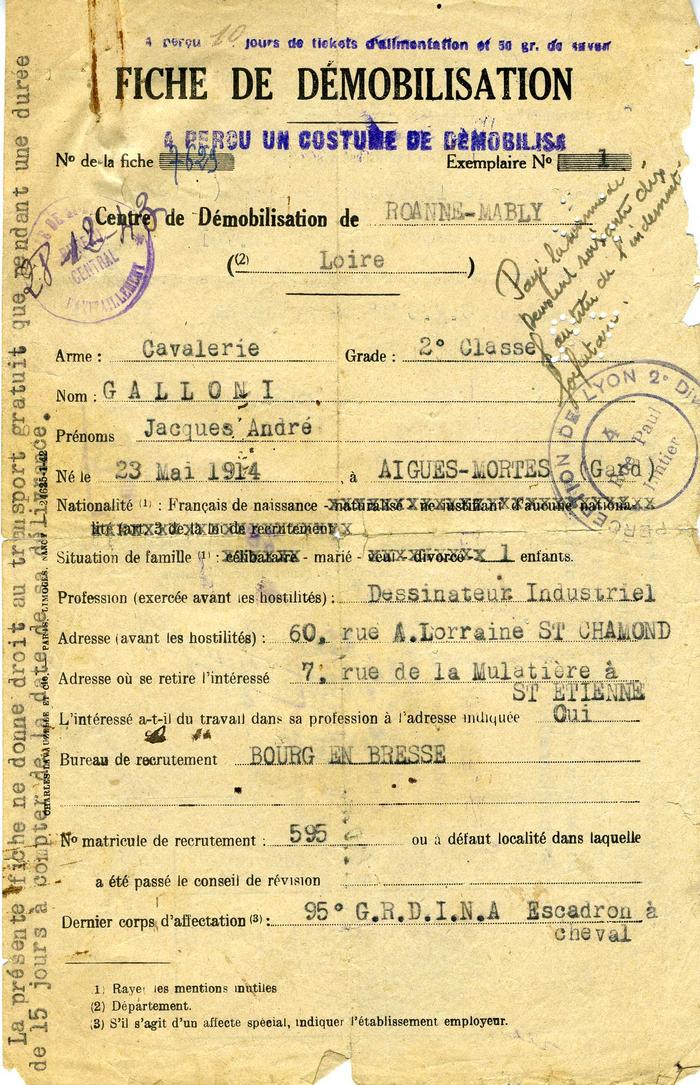 A perçu 10 jours de tickets d'alimentation et 50 gr. de savon
FICHE DE DÉMOBILISATION
A PERÇU UN COSTUME DE DÉMOBILISÉ
Nº de la fiche 7629 Exemplaire Nº 1
Centre de Démobilisation de ROANNE-MABLY
((2) Loire )
28 12 43
CENTRAL
Payé la somme de
soixante dix
au titre de l'indemnité
forfaitaire.
Arme : Cavalerie Grade : 2° Classe
Nom : GALLONI
Prénoms Jacques André
Né le 23 Mai 1914 , à AIGUES-MORTES (Gard)
PERCEPTION DE LYON 2° DIV
4 Rue Paul
Nationalité (1) : Français de naissance - naturalisé - ne justifiant d'aucune nationa-
lité (art. 3 de la loi de recrutement
Situation de famille (1) : célibataire - marié - veuf - divorcé - 1 enfants.
Profession (exercée avant les hostilités) : Dessinateur Industriel
Adresse (avant les hostilités) : 60, rue A.Lorraine ST CHAMOND
Adresse où se retire l'intéressé 7, rue de la Mulatière à
ST ETIENNE
L'intéressé a-t-il du travail dans sa profession à l'adresse indiquée Oui
Bureau de recrutement BOURG EN BRESSE
Nº matricule de recrutement : 595 ou à défaut localité dans laquelle
a été passé le conseil de révision
Dernier corps d'affectation (3) : 95° G.R.D.I.N.A Escadron à
cheval
(1) Rayer les mentions inutiles
(2) Département.
(3) S'il s'agit d'un affecté spécial, indiquer l'établissement employeur.
La présente fiche ne donne droit au transport gratuit que pendant une durée
de 15 jours à compter de la date de sa délivrance.
CHARLES-LAVAUZELLE ET Cie, PARIS, LIMOGES, NANCY